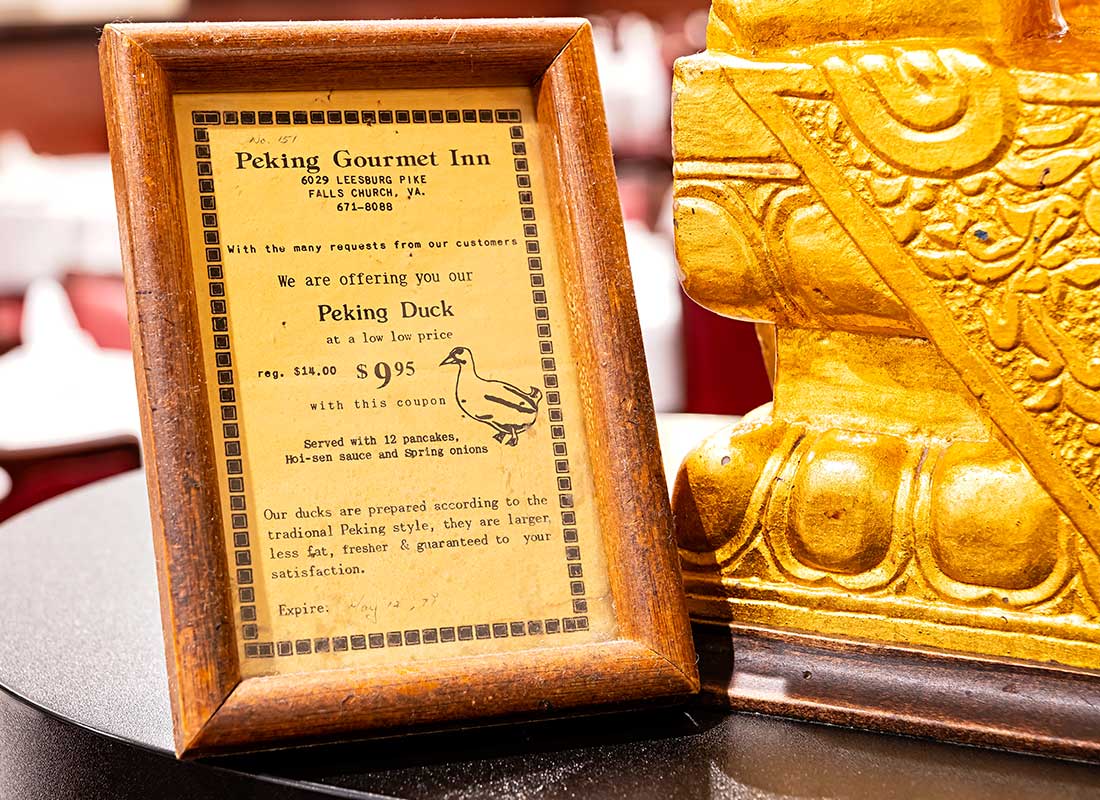 No. 151
Peking Gourmet Inn
6029 LEESBURG PIKE
FALLS CHURCH, VA.
671-8088
With the many requests from our customers
We are offering you our
Peking Duck
at a low low price
reg. $14.00 $9.95
with this coupon
Served with 12 pancakes,
Hoi-sen sauce and Spring onions
Our ducks are prepared according to the
tradional Peking style, they are larger,
less fat, fresher & guaranteed to your
satisfaction.
Expire: May 12, 79